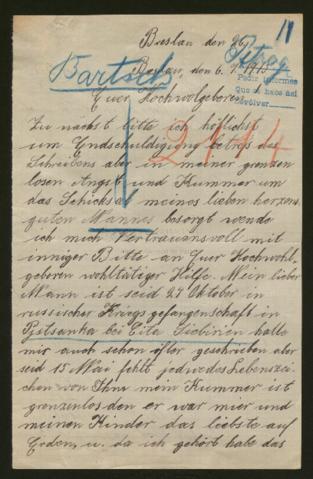 11
Breslau den
Petrog
Bartsch
Breslau, den 6. 9. 1915
Pedir informes
Que
devolver
Euer Hochwolgeboren
Zu nächst bitte ich höflichst
um Endschuldigung betrefs des
Schreibens aber in meiner grenzen
losen Angst und Kummer um
das Schicksal meines lieben herzens
guten Mannes besorgt wende
ich mich Vertrauensvoll mit
inniger Bitte an Euer Hochwohl-
geboren wohltätiger Hilfe. Mein lieber
Mann ist seid 27 Oktober in
russischer Kriegsgefangenschaft in
Pjetsanka bei Cita Siebirien hatte
mir auch schon öfter geschrieben aber
seid 15 Mai fehlt jedwedes Lebenszei-
chen von Ihm mein Kummer ist
grenzenlos den er war mir und
meinen Kinder das liebste auf
Erden, u. da ich gehört habe das
2114